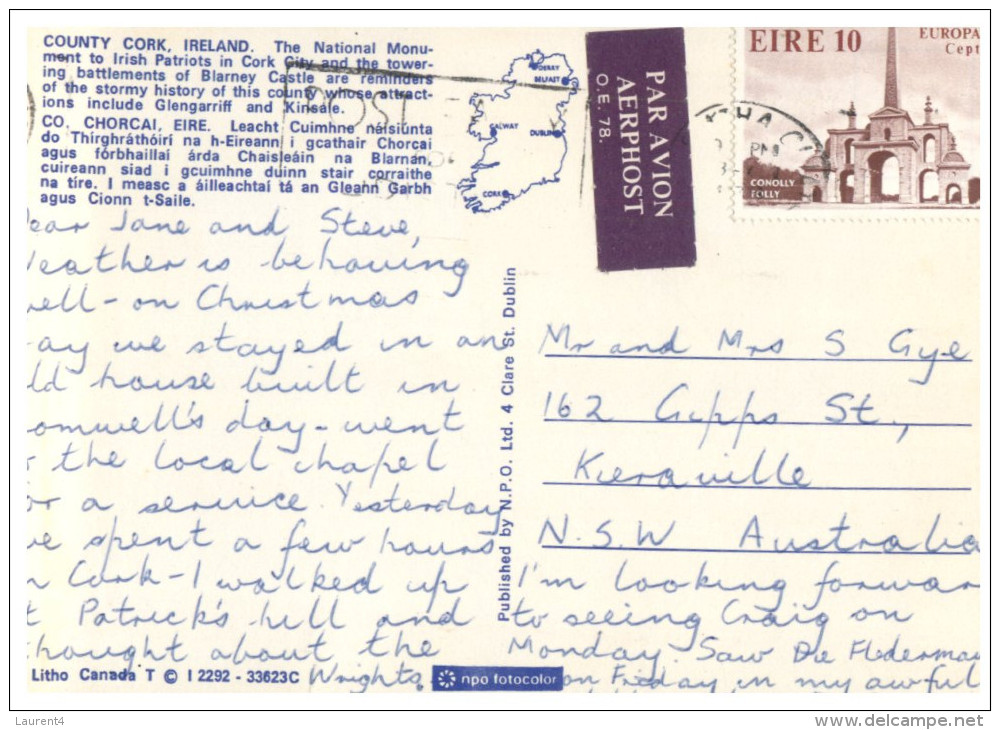 COUNTY CORK, IRELAND. The National Monu-
ment to Irish Patriots in Cork City and the tower-
ing battlements of Blarney Castle are reminders
of the stormy history of this county whose attract-
ions include Glengarriff and Kinsale.
CO. CHORCAI, EIRE. Leacht Cuimhne náisiúnta
do Thírghráthóirí na h-Eireann i gcathair Chorcai
agus fórbhaillaí árda Chaisleáin na Blarnan,
cuireann siad i gcuimhne duinn stair corraithe
na tíre. I measc a áilleachtaí tá an Gleann Garbh
agus Cionn t-Saile.
DERRY
BELFAST
GALWAY
DUBLIN
CORK
PAR AVION
AERPHOST
O.E. 78.
EIRE 10
EUROPA
Cept
CONOLLY
FOLLY
PM
POST
ear Jane and Steve,
eather is behaving
ell - on Christmas
ay we stayed in an
ld house built in
omwell's day - went
the local chapel
or a service. Yesterday
e spent a few hours
n Cork - I walked up
t Patrick's hill and
hought about the
Wrights.
Published by N.P.O. Ltd. 4 Clare St. Dublin
Mr and Mrs S Gye
162 Gipps St.,
Kieraville
N.S.W Australia
I'm looking forwar
to seeing Craig on
Monday. Saw Die Fledermau
on Friday in my awful
Litho Canada T © I 2292 - 33623C
npo fotocolor
Laurent4
delcampe.net